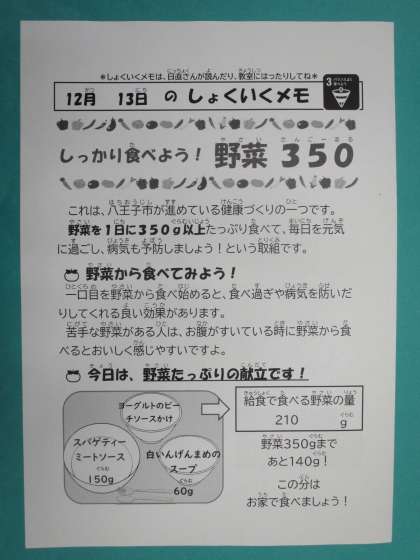 ＊しょくいくメモは、日直さんが読んだり、教室にはったりしてね＊
12月 13日 の しょくいくメモ
しっかり食べよう！ 野菜 350
これは、八王子市が進めている健康づくりの一つです。
野菜を1日に350g以上たっぷり食べて、毎日を元気
に過ごし、病気も予防しましょう！という取組です。
野菜から食べてみよう！
一口目を野菜から食べ始めると、食べ過ぎや病気を防いだ
りしてくれる良い効果があります。
苦手な野菜がある人は、お腹がすいている時に野菜から食
べるとおいしく感じやすいですよ。
今日は、野菜たっぷりの献立です！
ヨーグルトのピー
チソースかけ
スパゲティー
ミートソース
150g
白いんげんまめの
スープ
60g
給食で食べる野菜の量
210 g
野菜350gまで
あと140g！
この分は
お家で食べましょう！